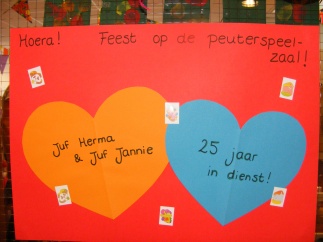 Hoera! Feest op de peuterspeel-
zaal!!
Juf Herma
& Juf Jannie
25 jaar
in dienst!